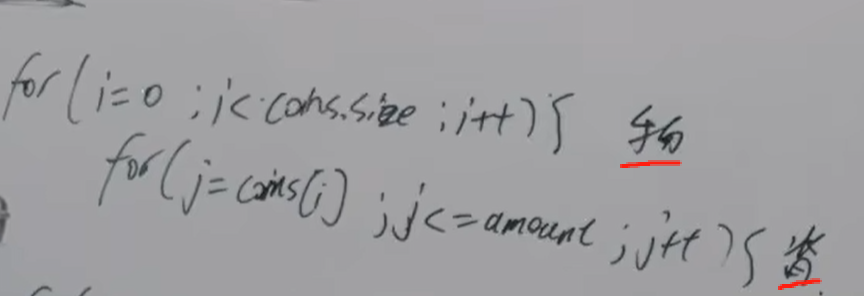 for(i=0 ;i<coins.size ;i++){ 物
for(j=coins[i] ;j<=amount ;j++){ 背